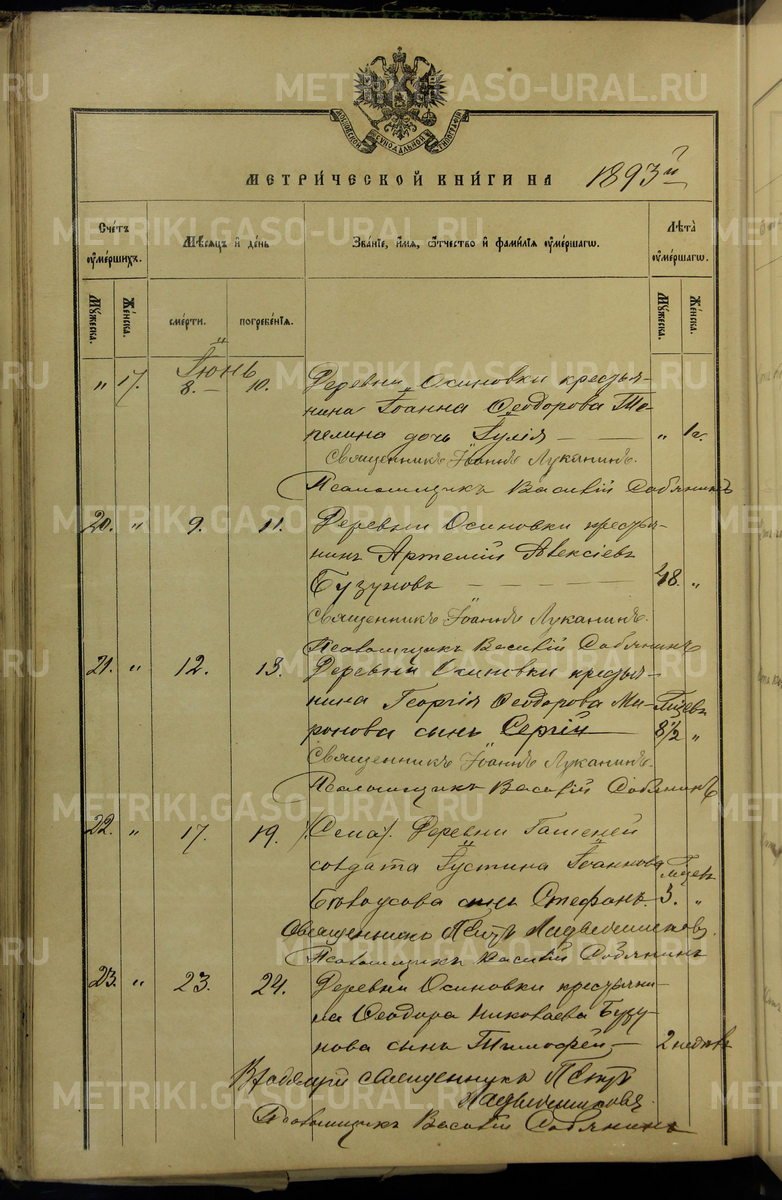 МОСКОВСКОЙ СѴНОДАЛЬНОЙ ТИПОГРАФІИ
МЕТРИ́ЧЕСКОЙ КНИ́ГИ НА 1893й г
Сче́тъ ᲂу҆ме́ршихъ.
Мѣ́сяцъ и҆ де́нь
Зва́нїе, и҆́мя, ѻ҆́тчество и҆ фами́лїя ᲂу҆ме́ршагѡ.
Лѣта̀ ᲂу҆ме́ршагѡ.
Мꙋ́жеска.
Же́нска.
сме́рти.
погребе́нїя.
Мꙋ́жеска.
Же́нска.
Іюнь
" 17. 8. — 10. Деревни Осиновки крестья-
нина Іоанна Ѳеодорова То-
пелина дочь Іулія — " 1 г.
Священникъ Іоаннъ Луканинъ.
Псаломщикъ Василій Собянинъ
20. " 9. 11. Деревни Осиновки крестья-
нинъ Артемій Алексіевъ
Бузуновъ — 48. "
Священникъ Іоаннъ Луканинъ.
Псаломщикъ Василій Собянинъ
21. " 12. 13. Деревни Осиновки крестья-
нина Георгія Ѳеодорова Ми-
ронова сынъ Сергій Мѣсяцевъ 8 1/2 "
Священникъ Іоаннъ Луканинъ.
Псаломщикъ Василій Собянинъ
22. " 17. 19. /Села/. Деревни
солдата Іустина Іоаннова
Бѣлоусова сынъ Стефанъ 3. "
Священникъ Петръ
Псаломщикъ Василій Собянинъ
23. " 23. 24. Деревни Осиновки крестьяни-
на Ѳеодора Николаева Бузу-
нова сынъ Тимоѳей — 2 недѣль
священникъ Петръ
Псаломщикъ Василій Собянинъ
METRIKI.GASO-URAL.RU